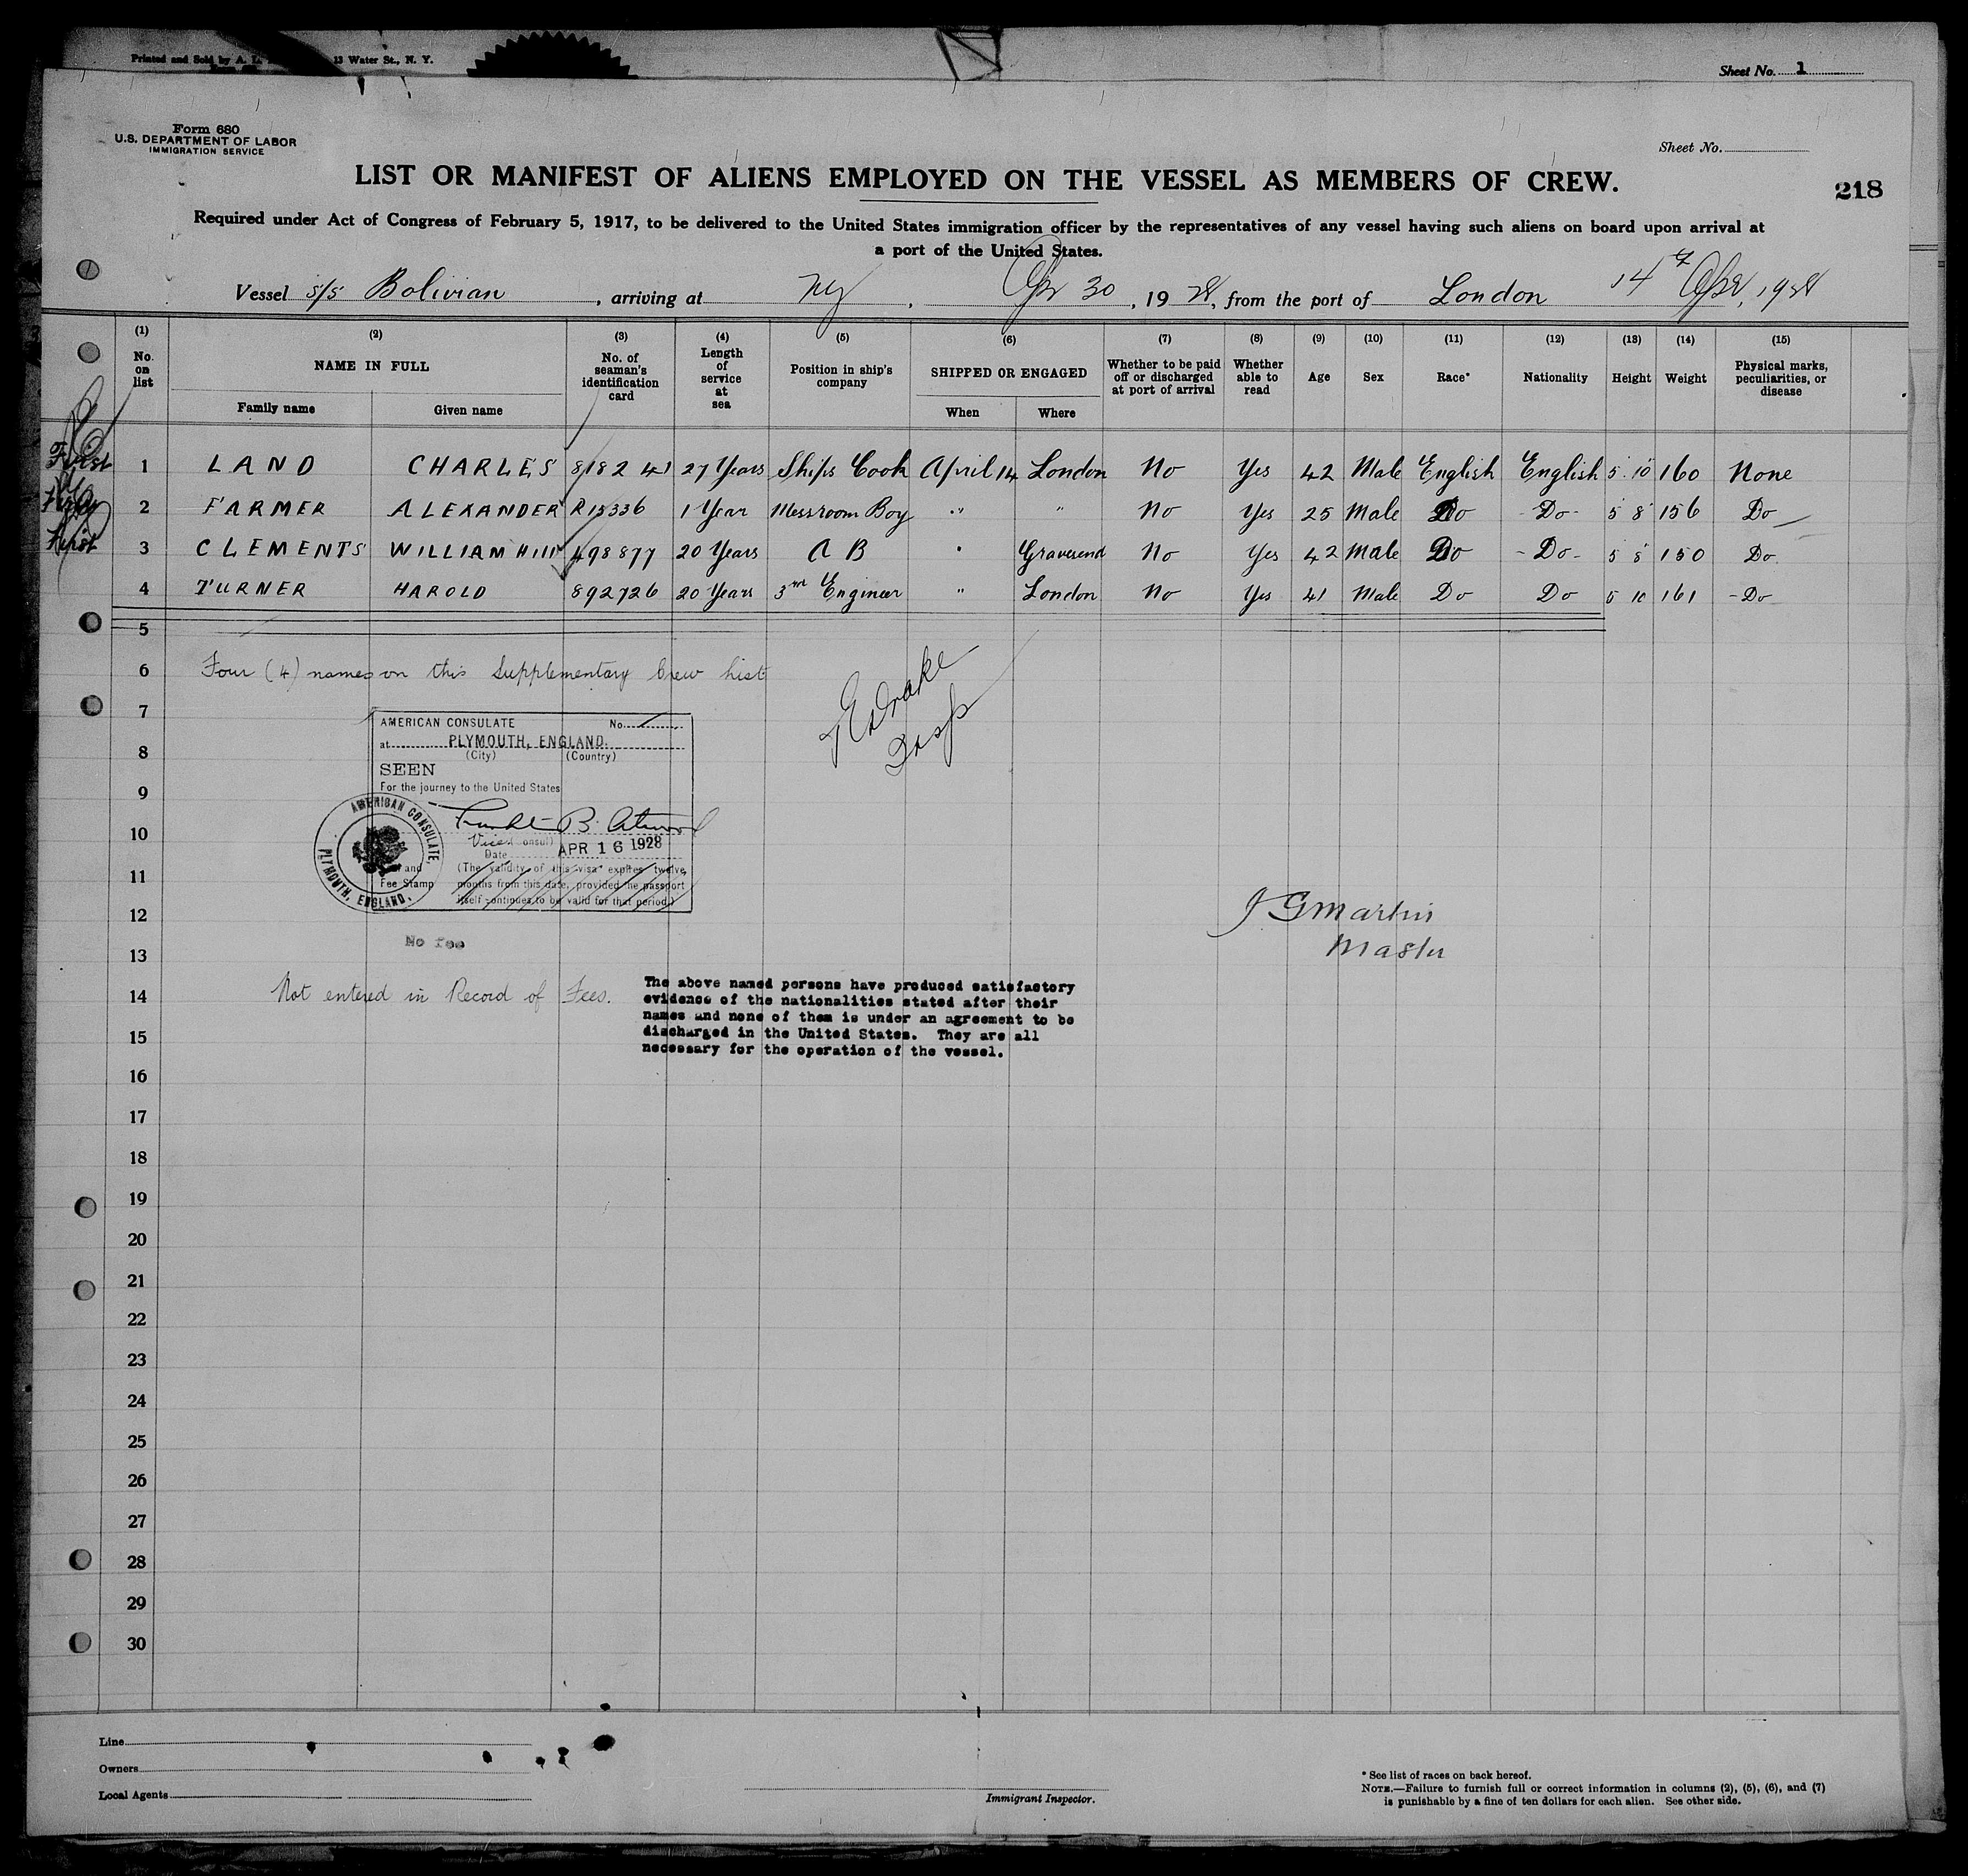 Printed and Sold by A. L. 13 Water St., N. Y.
Sheet No. 1
Form 680
U.S. DEPARTMENT OF LABOR
IMMIGRATION SERVICE
Sheet No.
LIST OR MANIFEST OF ALIENS EMPLOYED ON THE VESSEL AS MEMBERS OF CREW.
218
Required under Act of Congress of February 5, 1917, to be delivered to the United States immigration officer by the representatives of any vessel having such aliens on board upon arrival at
a port of the United States.
Vessel s/s Bolivian, arriving at NY, Apr 30, 1928, from the port of London 14th Apr, 1928
(1) (2) (3) (4) (5) (6) (7) (8) (9) (10) (11) (12) (13) (14) (15)
No. on list NAME IN FULL No. of seaman's identification card Length of service at sea Position in ship's company SHIPPED OR ENGAGED Whether to be paid off or discharged at port of arrival Whether able to read Age Sex Race* Nationality Height Weight Physical marks, peculiarities, or disease
Family name Given name When Where
First 1 LAND CHARLES 818241 27 Years Ships Cook April 14 London No Yes 42 Male English English 5 10 160 None
2 FARMER ALEXANDER R15336 1 Year Messroom Boy " " No Yes 25 Male Do -Do- 5 8 156 Do
First 3 CLEMENTS WILLIAM Hill 498877 20 Years A B " Gravesend No Yes 42 Male Do -Do- 5 5 150 Do
4 TURNER HAROLD 892726 20 Years 3rd Engineer " London No Yes 41 Male Do Do 5 10 161 -Do-
5
6 Four (4) names on this Supplementary Crew List
7
8
9
10
11
12
13
14
15
16
17
18
19
20
21
22
23
24
25
26
27
28
29
30
Drake
Insp
AMERICAN CONSULATE No.
at PLYMOUTH, ENGLAND.
(City) (Country)
SEEN
For the journey to the United States
B. Atwood
Vice Consul
Date APR 16 1928
(The validity of this visa expires twelve
months from this date, provided the passport
itself continues to be valid for that period.)
and
Fee Stamp
AMERICAN CONSULATE,
PLYMOUTH, ENGLAND.
No fee
J G Martin
Master
Not entered in Record of Fees.
The above named persons have produced satisfactory
evidence of the nationalities stated after their
names and none of them is under an agreement to be
discharged in the United States. They are all
necessary for the operation of the vessel.
Line
Owners
Local Agents
Immigrant Inspector.
* See list of races on back hereof.
NOTE.—Failure to furnish full or correct information in columns (2), (5), (6), and (7)
is punishable by a fine of ten dollars for each alien. See other side.